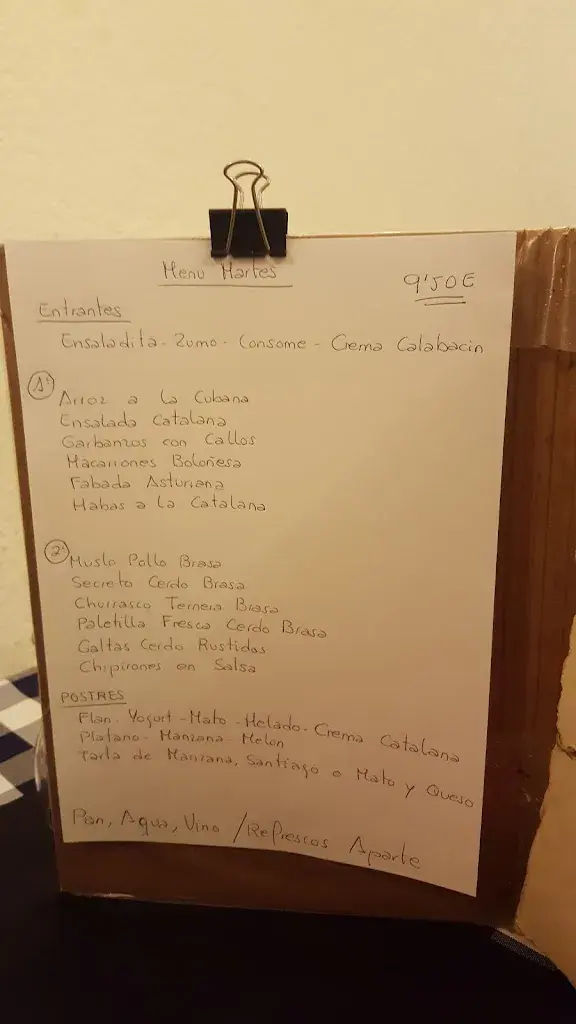 Menu Martes
9'50E
Entrantes
Ensaladita - Zumo - Consome - Crema Calabacin
1º
Arroz a la Cubana
Ensalada Catalana
Garbanzos con Callos
Macarrones Boloñesa
Fabada Asturiana
Habas a la Catalana
2º
Muslo Pollo Brasa
Secreto Cerdo Brasa
Churrasco Ternera Brasa
Paletilla Fresca Cerdo Brasa
Galtas Cerdo Rustidas
Chipirones en Salsa
POSTRES
Flan - Yogurt - Mato - Helado - Crema Catalana
Platano - Manzana - Melon
Tarta de Manzana, Santiago o Mato y Queso
Pan, Agua, Vino / Refrescos Aparte